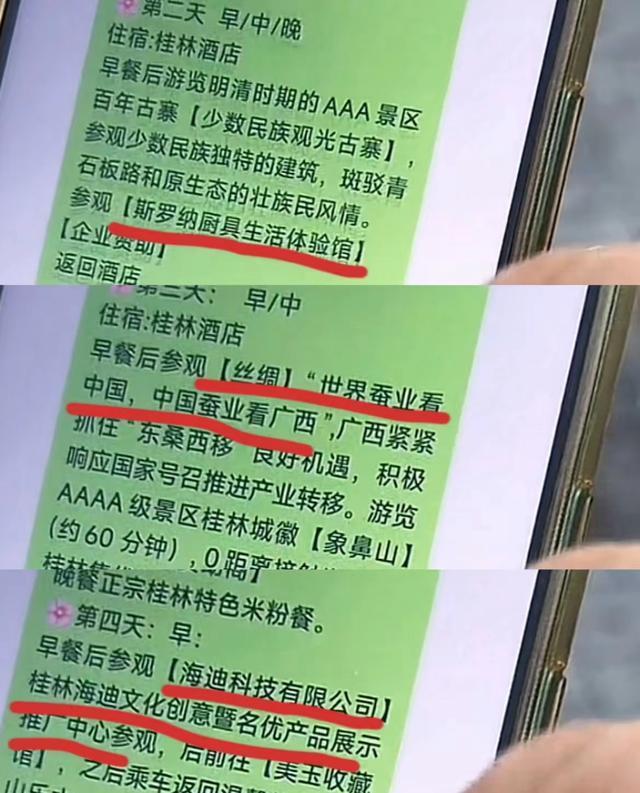 第二天 早/中/晚
住宿:桂林酒店
早餐后游览明清时期的AAA景区
百年古寨【少数民族观光古寨】,
参观少数民族独特的建筑，斑驳青
石板路和原生态的壮族民风情。
参观【斯罗纳厨具生活体验馆】
【企业赞助】
返回酒店
第三天： 早/中
住宿:桂林酒店
早餐后参观【丝绸】“世界蚕业看
中国，中国蚕业看广西”,广西紧紧
抓住“东桑西移”良好机遇，积极
响应国家号召推进产业转移。游览
AAAA级景区桂林城徽【象鼻山】
(约60分钟）,0距离接触
桂林
晚餐正宗桂林特色米粉餐。
第四天：早：
早餐后参观【海迪科技有限公司】
桂林海迪文化创意暨名优产品展示
推广中心参观，后前往【美玉收藏
馆】,之后乘车返回温